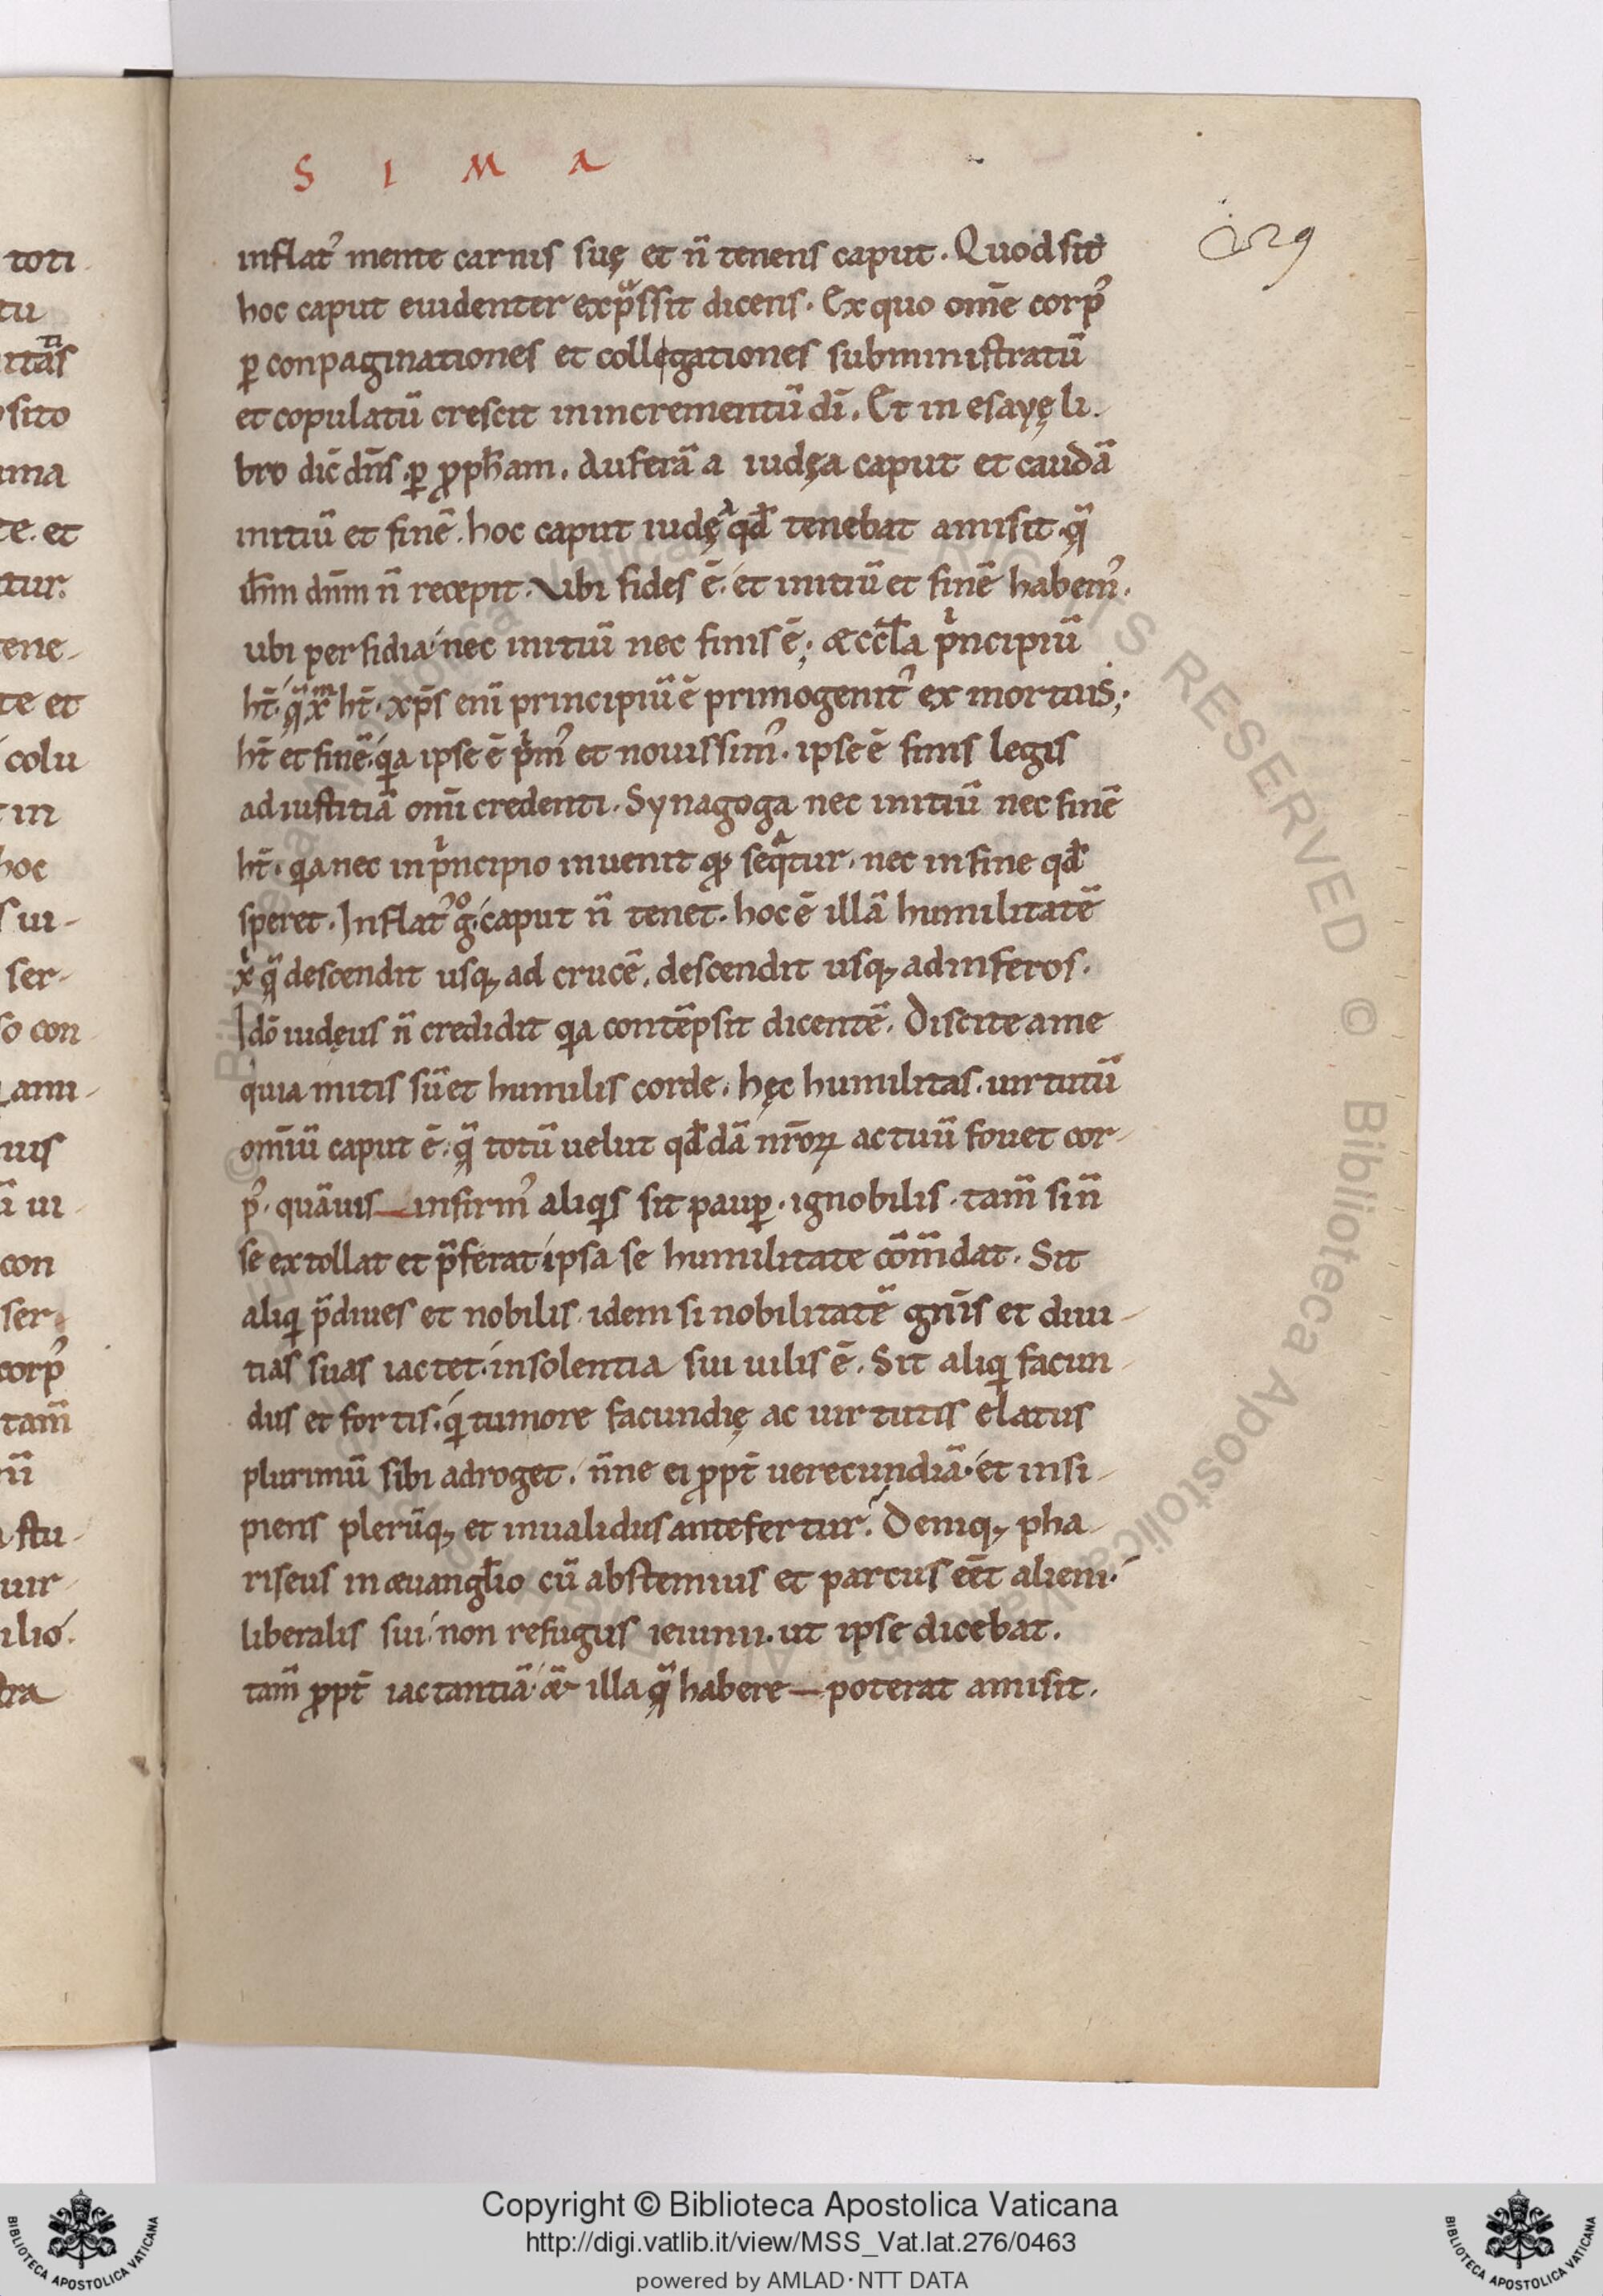 S I M A
229
inflat᷒ mente carnis suę et n̄ tenens caput. Quod sit
hoc caput euidenter exp̄ssit dicens. Ex quo om̄e corp᷒
ꝑ conpaginationes et collegationes subministratū
et copulatū crescit in incrementū dī. Et in esayę li.
bro dic̄ dn̄s ꝑ ꝓph̄am. Auferā a iudęa caput et caudā
initiū et finē. hoc caput iudę᷒ qđ tenebat amisit. q̄
ih̄m dn̄m n̄ recepit. Vbi fides ē. et initiū et finē habem᷒.
ubi perfidia nec initiū nec finis ē; æccl̄a pͥncipiū
ht̄. q̄ xͫ ht̄. xp̄s eni principiū ē primogenit᷒ ex mortuis;
ht̄ et finē. qa ipse ē pͥm᷒ et nouissim᷒. ipse ē finis legis
ad iustitiā om̄i credenti. Synagoga nec initiū nec finē
ht̄. qa nec in pͥncipio inuenit qđ seqͣtur. nec in fine qđ
speret. Inflat᷒ gͦ. caput n̄ tenet. hoc ē illā humilitatē
xͥ q̄ descendit usq; ad crucē. descendit usq; ad inferos.
Idō iudęus n̄ credidit qa contēpsit dicentē. Discite a me
quia mitis sū et humilis corde. hęc humilitas. uirtutū
om̄iū caput ē. q̄ totū uelut qđdā nr̄oꝝ actuū fouet cor-
p᷒. quāuis infirm᷒ aliqis sit paup̱. ignobilis. tam̄ si n̄
se extollat et p̄ferat ipsa se humilitate cōm̄dat. Sit
aliqi p̄diues et nobilis. idem si nobilitatē gn̄is et diui-
tias suas iactet. insolentia sui uilis ē. Sit aliqi facun-
dus et fortis. qi tumore facundię ac uirtutis elatus
plurimū sibi adroget. n̄ne ei ꝓpt̄ uerecundiā. et insi-
piens plerūq; et inualidus antefertur? Deniq; pha-
riseus in æuangl̄io cū abstemius et parcus eēt alieni.
liberalis sui non refugus ieiunii. ut ipse dicebat.
tam̄ ꝓpt̄ iactantiā. illa q̄ habere poterat amisit.
toti
tu
sito
te. et
tene-
te et
colu
in
hoc
ui-
ser-
so con
ami-
ui
con
ser
corp᷒
tam̄
stu-
uir-
ilio.
© Biblioteca Apostolica Vaticana
ALL RIGHTS RESERVED
Copyright © Biblioteca Apostolica Vaticana
http://digi.vatlib.it/view/MSS_Vat.lat.276/0463
powered by AMLAD·NTT DATA
BIBLIOTECA APOSTOLICA VATICANA
BIBLIOTECA APOSTOLICA VATICANA